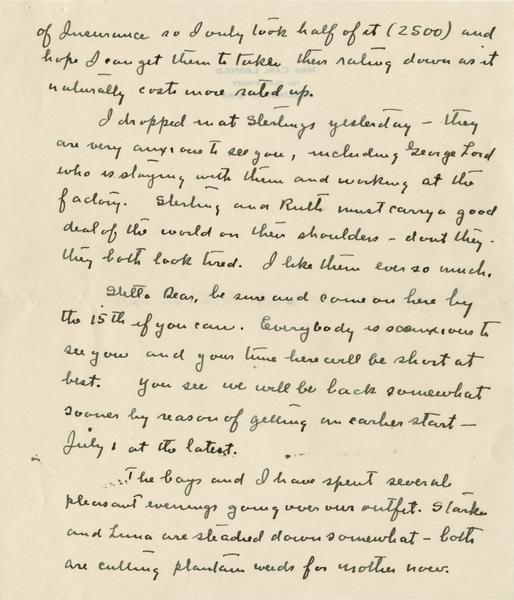 of Insurance so I only took half of it (2500) and
hope I can get them to take their rating down as it
naturally costs more rated up.
I dropped in at Sterlings yesterday – they
are very anxious to see you, including George Lord
who is staying with them and working at the
factory. Sterling and Ruth must carry a good
deal of the world on their shoulders – dont they.
they both look tired. I like them ever so much.
Stella Dear, be sure and come on here by
the 15th if you can. Everybody is so anxious to
see you and your time here will be short at
best. You see we will be back somewhat
sooner by reason of getting an earlier start –
July 1 at the latest.
The boys and I have spent several
pleasant evenings going over our outfit. Starker
and Luna are steadied down somewhat – both
are cutting plantain weeds for mother now.